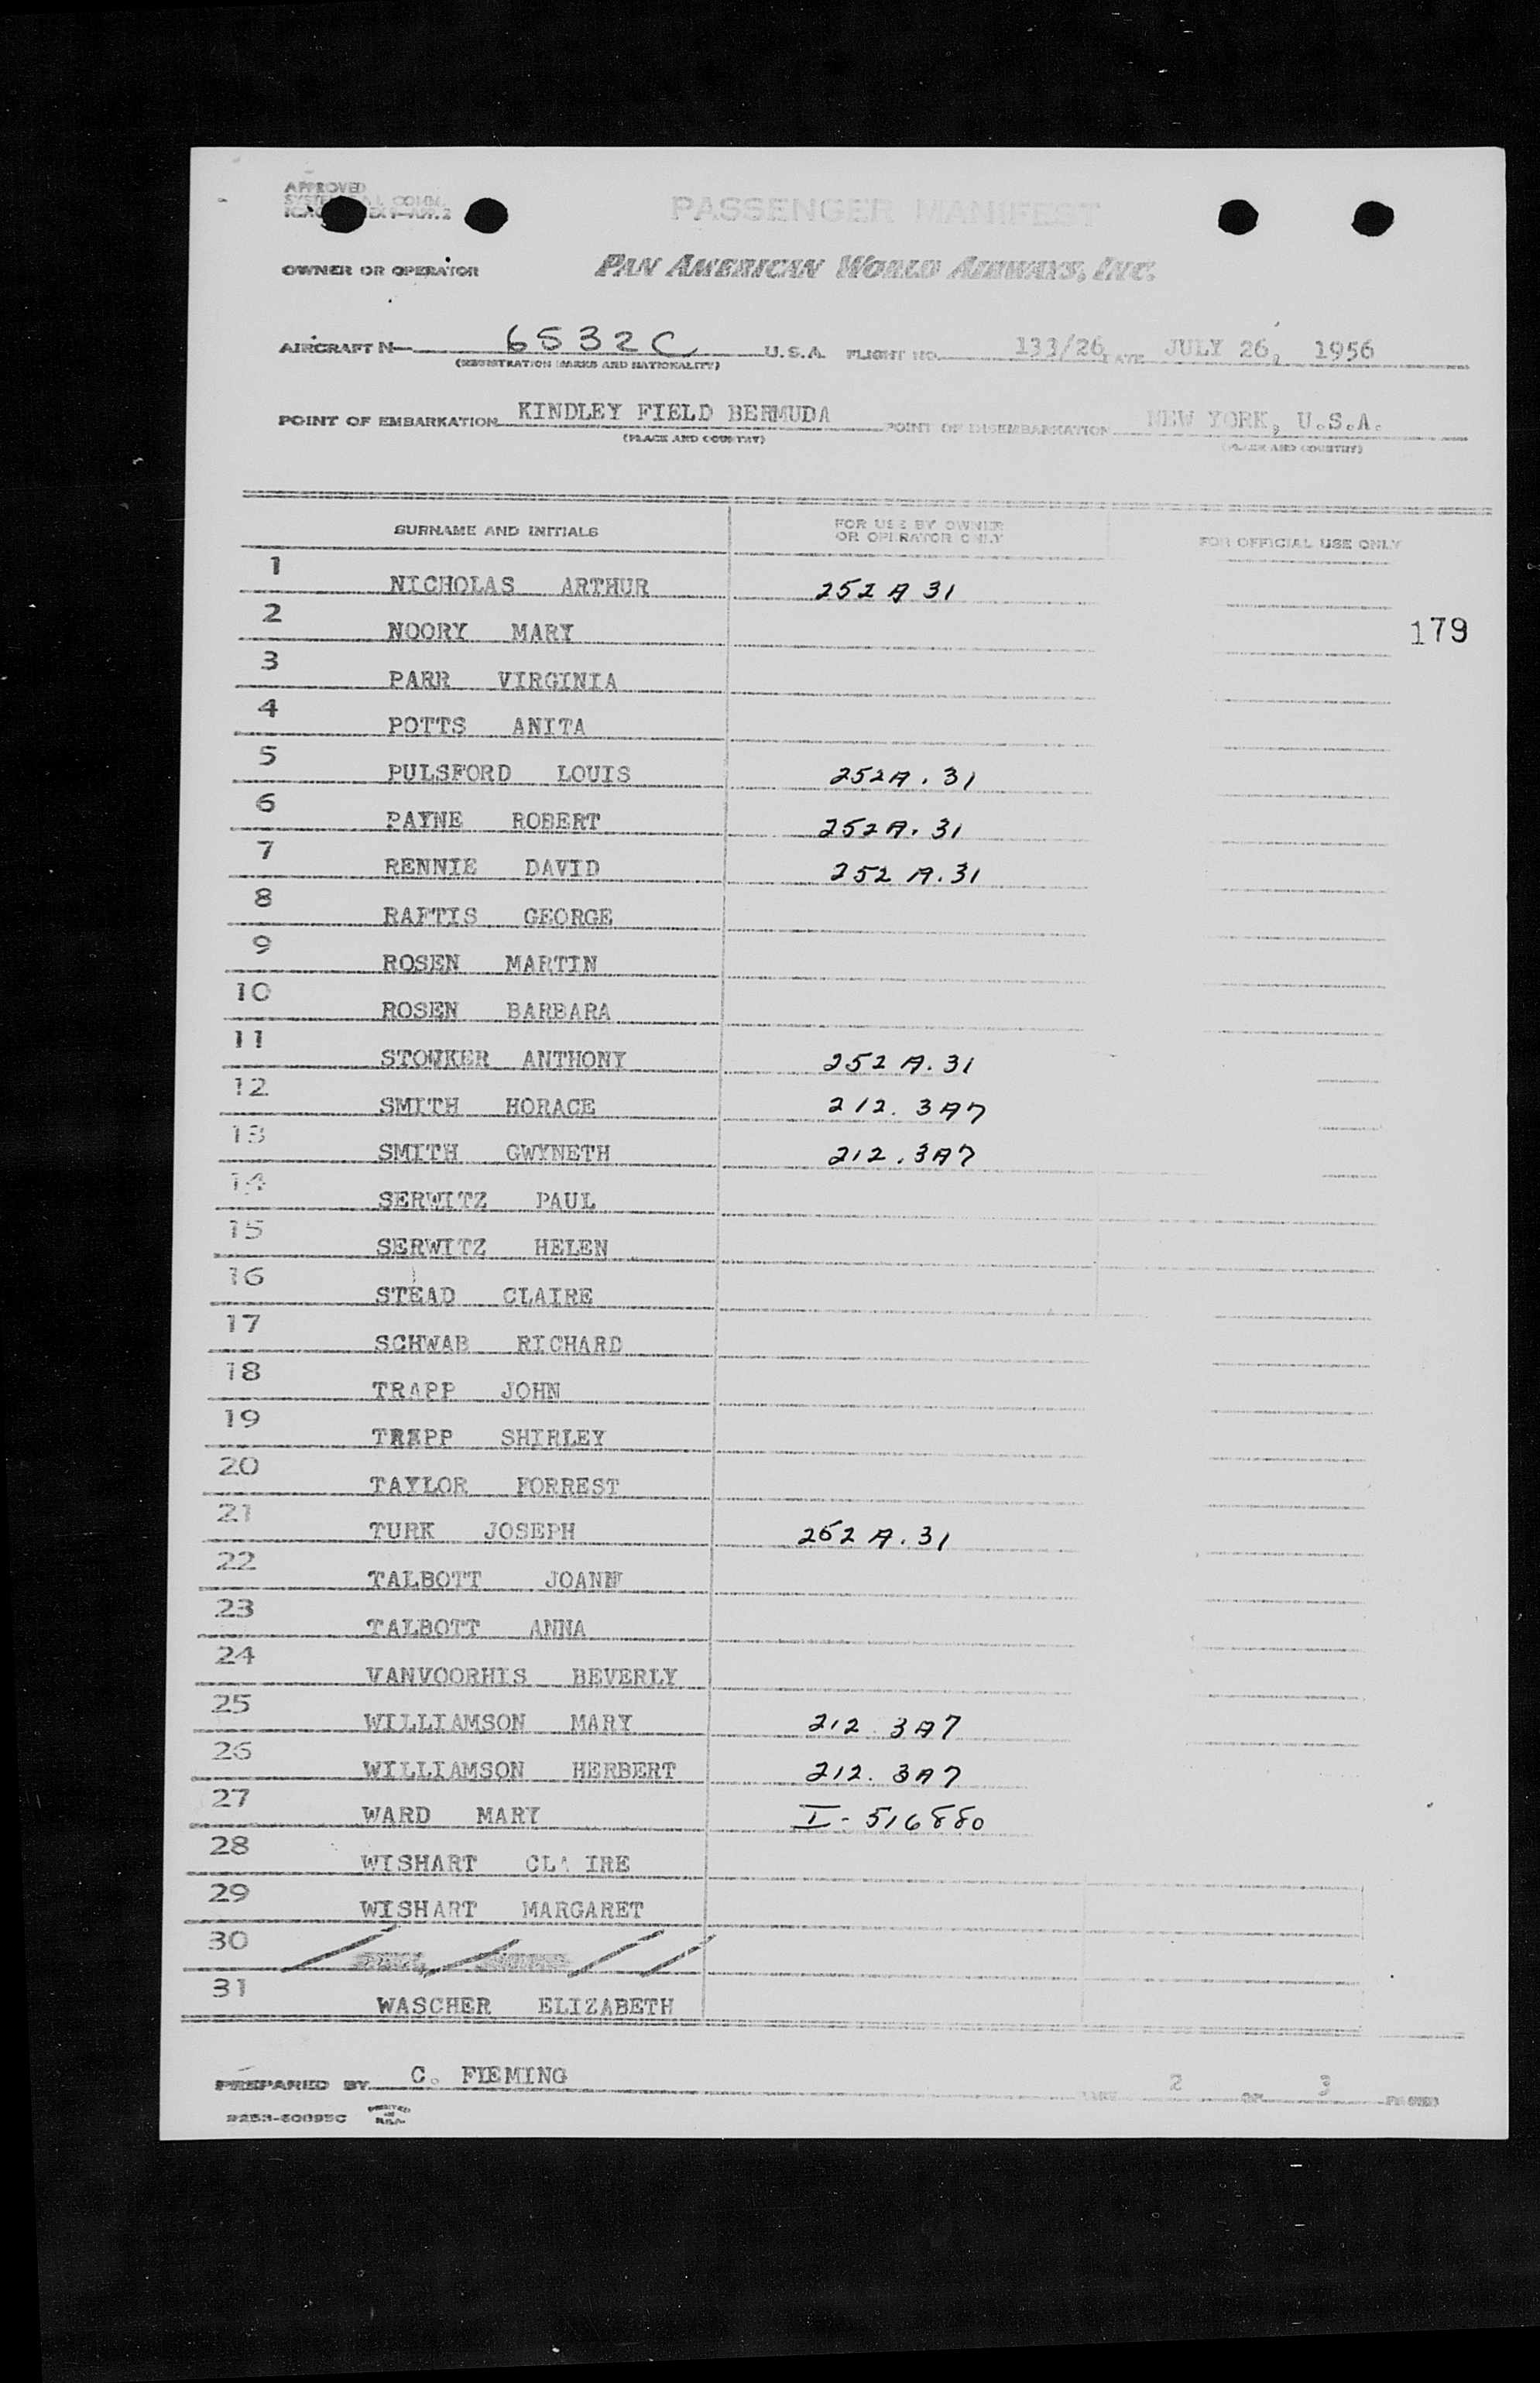 APPROVED
PASSENGER MANIFEST
OWNER OR OPERATOR PAN AMERICAN WORLD AIRWAYS, INC.
AIRCRAFT N— 6532C U.S.A. FLIGHT NO. 133/26 DATE JULY 26, 1956
(REGISTRATION MARKS AND NATIONALITY)
POINT OF EMBARKATION KINDLEY FIELD BERMUDA POINT OF DISEMBARKATION NEW YORK, U.S.A.
(PLACE AND COUNTRY) (PLACE AND COUNTRY)
SURNAME AND INITIALS FOR USE BY OWNER OR OPERATOR ONLY FOR OFFICIAL USE ONLY
1 NICHOLAS ARTHUR 252 A 31
2 NOORY MARY 179
3 PARR VIRGINIA
4 POTTS ANITA
5 PULSFORD LOUIS 252A.31
6 PAYNE ROBERT 252A.31
7 RENNIE DAVID 252 A.31
8 RAFTIS GEORGE
9 ROSEN MARTIN
10 ROSEN BARBARA
11 STOWKER ANTHONY 252 A.31
12 SMITH HORACE 212.3A7
13 SMITH GWYNETH 212.3A7
14 SERWITZ PAUL
15 SERWITZ HELEN
16 STEAD CLAIRE
17 SCHWAB RICHARD
18 TRAPP JOHN
19 TRAPP SHIRLEY
20 TAYLOR FORREST
21 TURK JOSEPH 252 A.31
22 TALBOTT JOANN
23 TALBOTT ANNA
24 VANVOORHIS BEVERLY
25 WILLIAMSON MARY 212 3A7
26 WILLIAMSON HERBERT 212.3A7
27 WARD MARY I-516880
28 WISHART CLAIRE
29 WISHART MARGARET
30
31 WASCHER ELIZABETH
PREPARED BY C. FIEMING 2 OF 3
PRINTED IN U.S.A.